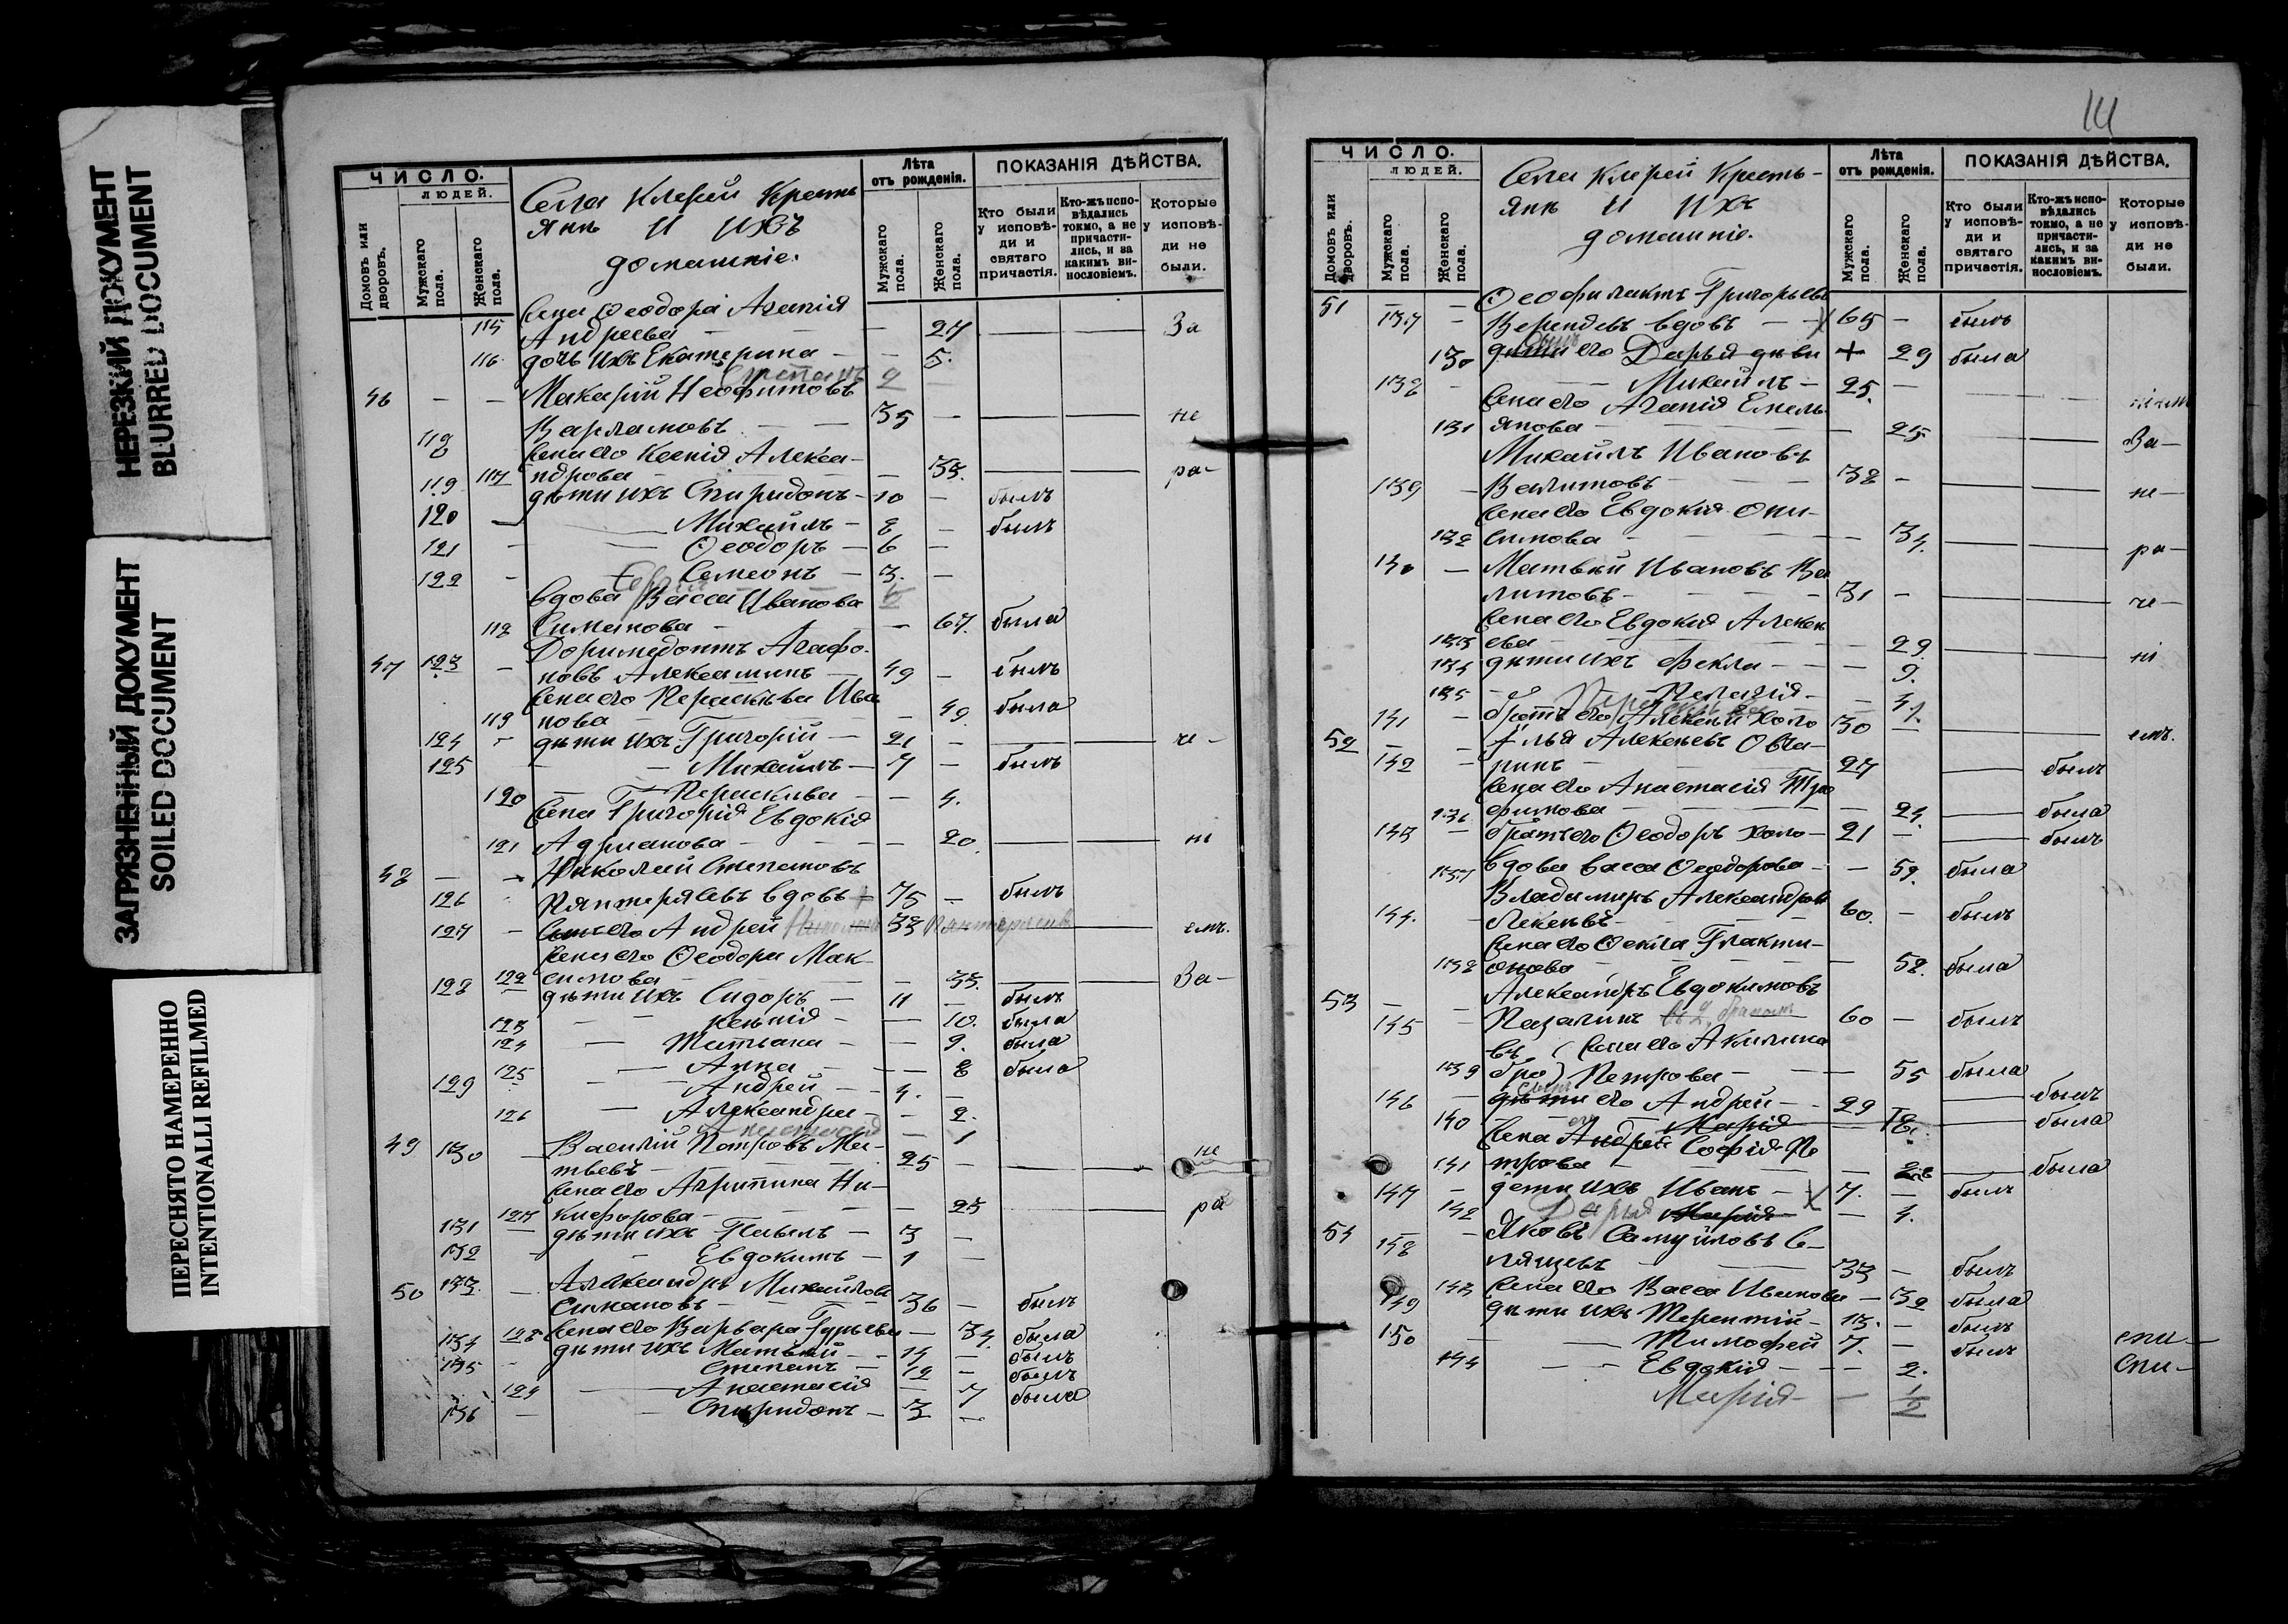 НЕРЕЗКИЙ ДОКУМЕНТ
BLURRED DOCUMENT
ЗАГРЯЗНЕННЫЙ ДОКУМЕНТ
SOILED DOCUMENT
ПЕРЕСНЯТО НАМЕРЕННО
INTENTIONALLI REFILMED
ЧИСЛО.
ЛЮДЕЙ.
Домовъ или дворовъ.
Мужскаго пола.
Женскаго пола.
Села Клерей Кресть
янъ и ихъ
домашніе.
Лѣта
отъ рожденія.
Мужскаго пола.
Женскаго пола.
ПОКАЗАНІЯ ДѢЙСТВА.
Кто были у исповѣди и святаго причастія.
Кто-жъ исповѣдались токмо, а не причастились, и за какимъ винословіемъ.
Которые у исповѣди не были.
жена Ѳеодора Агапія
115 Андреева — 27 За
116 дочь ихъ Екатерина — 5.
Степанъ 2
46 Макарій Неофитовъ
Варламовъ 35 — не
118
жена его Ксенія Алекса-
117 ндрова — 33. ра-
119 дѣти ихъ Спиридонъ — 10 — былъ
120 Михаилъ — 8 — былъ
121 Ѳеодоръ — 6 —
122 Семеонъ — 3. —
вдова Васса Иванова
118 Симанова — 67. была
Доримедонтъ Агафо-
47 123 новъ Алексашинъ 49 — былъ
жена его Параскева Ива
119 нова — 49. была
124 дѣти ихъ Григорій — 21 — че-
125 Михаилъ — 7 — былъ
120 Параскева — 4.
жена Григорія Евдокія
121 Адріанова — 20. ні
48 Николай Степановъ
126 вдовъ + 75 — былъ
127 сынъ его Андрей 33 емъ.
жена его Ѳеодора Мак-
122 симова — 33. За-
128 дѣти ихъ Сидоръ — 11 — былъ
123 Ксенія — 10. была
124 Татьяна — 9. была
125 Анна — 8 была
129 Андрей — 4. —
126 Александра — 2.
Анастасія — 1
49 130 Василій Петровъ Ма-
твевъ 25 — не
жена его Агрипина Ни-
127 кифорова — 23 ра
131 дѣти ихъ Павелъ — 3 —
132 Евдокимъ — 1
50 133. Александръ Михайловъ
Симановъ 36 — былъ
128 жена его Варвара Гурьева — 34. была
134 дѣти ихъ Матвей — 14 — былъ
135 Степанъ — 12 — былъ
129 Анастасія — 7 была
136 Спиридонъ — 3 —
14
ЧИСЛО.
ЛЮДЕЙ.
Домовъ или дворовъ.
Мужскаго пола.
Женскаго пола.
Села Клерей Кресть-
янъ и ихъ
домашніе.
Лѣта
отъ рожденія.
Мужскаго пола.
Женскаго пола.
ПОКАЗАНІЯ ДѢЙСТВА.
Кто были у исповѣди и святаго причастія.
Кто-жъ исповѣдались токмо, а не причастились, и за какимъ винословіемъ.
Которые у исповѣди не были.
51 Ѳеофилактъ Григорьевъ
137 вдовъ — 65 — былъ
130 дѣти его Дарья + 29 была
138 Михаилъ — 25. —
жена его Агапія Емель-
131 янова — 25 За-
Михаилъ Ивановъ
139 Валитовъ 38 — не-
жена его Евдокія Они-
132 симова — 34. ра-
140 Матвѣй Ивановъ Ва
литовъ 31 — че-
жена его Евдокія Алексѣ
133 ева — 29. ні
134 дѣти ихъ Ѳекла — 9.
135 Пелагія — 4.
141 братъ его Алексѣй холо 30 — емъ.
52 Илья Алексѣевъ Овча-
142 ринъ 27 былъ
жена его Анастасія Тро
136 фимова — 24. была
143 братъ его Ѳеодоръ холо- 21 — былъ
137 вдова Васса Ѳеодорова — 59. была
Владимиръ Александровъ
144. 60. — былъ
жена его Ѳекла Галакти-
138 онова — 58. была
53 Александръ Евдокимовъ
145 60 — былъ
жена его Акилина
139 Петрова — 55 была
сынъ
146 дѣти его Андрей — 29 былъ
140 Марія — 18. была
жена Андрея Софія Пе
141 трова — была
147 дѣти ихъ Иванъ — 7. — былъ
142 Дарья Марія — 4.
54 148 Яковъ Самуиловъ
33 — былъ
143 жена его Васса Иванова — 32 была
149 дѣти ихъ Терентій — 13. — былъ
150 Тимофей 7. — былъ
144 Евдокія — 2.
Марія — 1/2